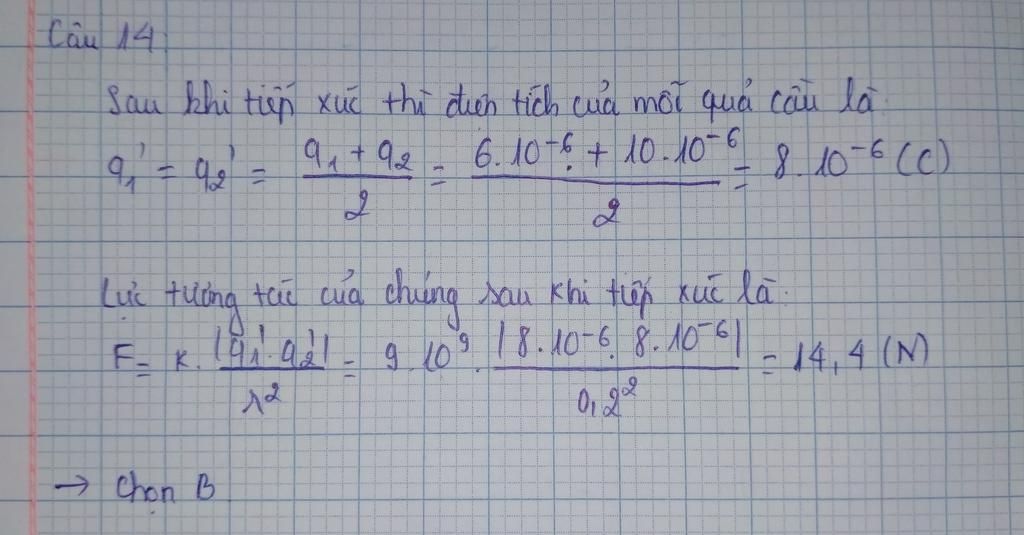 Câu 14
Sau khi tiếp xúc thì điện tích của mỗi quả cầu là:
q₁' = q₂' = (q₁ + q₂)/2 = (6.10⁻⁶ + 10.10⁻⁶)/2 = 8.10⁻⁶ (C)
Lực tương tác của chúng sau khi tiếp xúc là:
F = k.|q₁'.q₂'|/r² = 9.10⁹.|8.10⁻⁶.8.10⁻⁶|/0,2² = 14,4 (N)
→ Chọn B